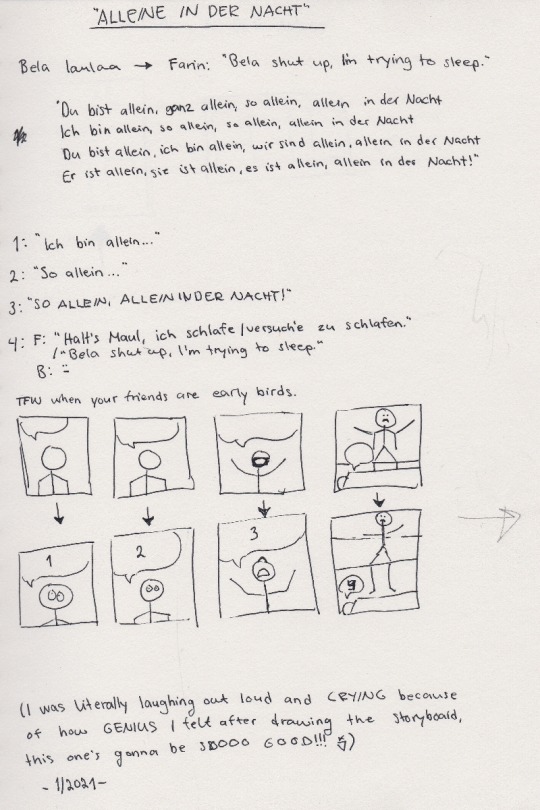 "ALLEINE IN DER NACHT"
Bela laulaa → Farin: "Bela shut up, I'm trying to sleep."
"Du bist allein, ganz allein, so allein, allein in der Nacht
Ich bin allein, so allein, so allein, allein in der Nacht
Du bist allein, ich bin allein, wir sind allein, allein in der Nacht
Er ist allein, sie ist allein, es ist allein, allein in der Nacht!"
1: "Ich bin allein..."
2: "So allein..."
3: "SO ALLEIN, ALLEIN IN DER NACHT!"
4: F: "Halt's Maul, ich schlafe/versuche zu schlafen."
/"Bela shut up, I'm trying to sleep."
B: :
TFW when your friends are early birds.
1
2
3
(I was literally laughing out loud and CRYING because
of how GENIUS I felt after drawing the storyboard,
this one's gonna be SOOOO GOOD!!!)
- 1/2021 -